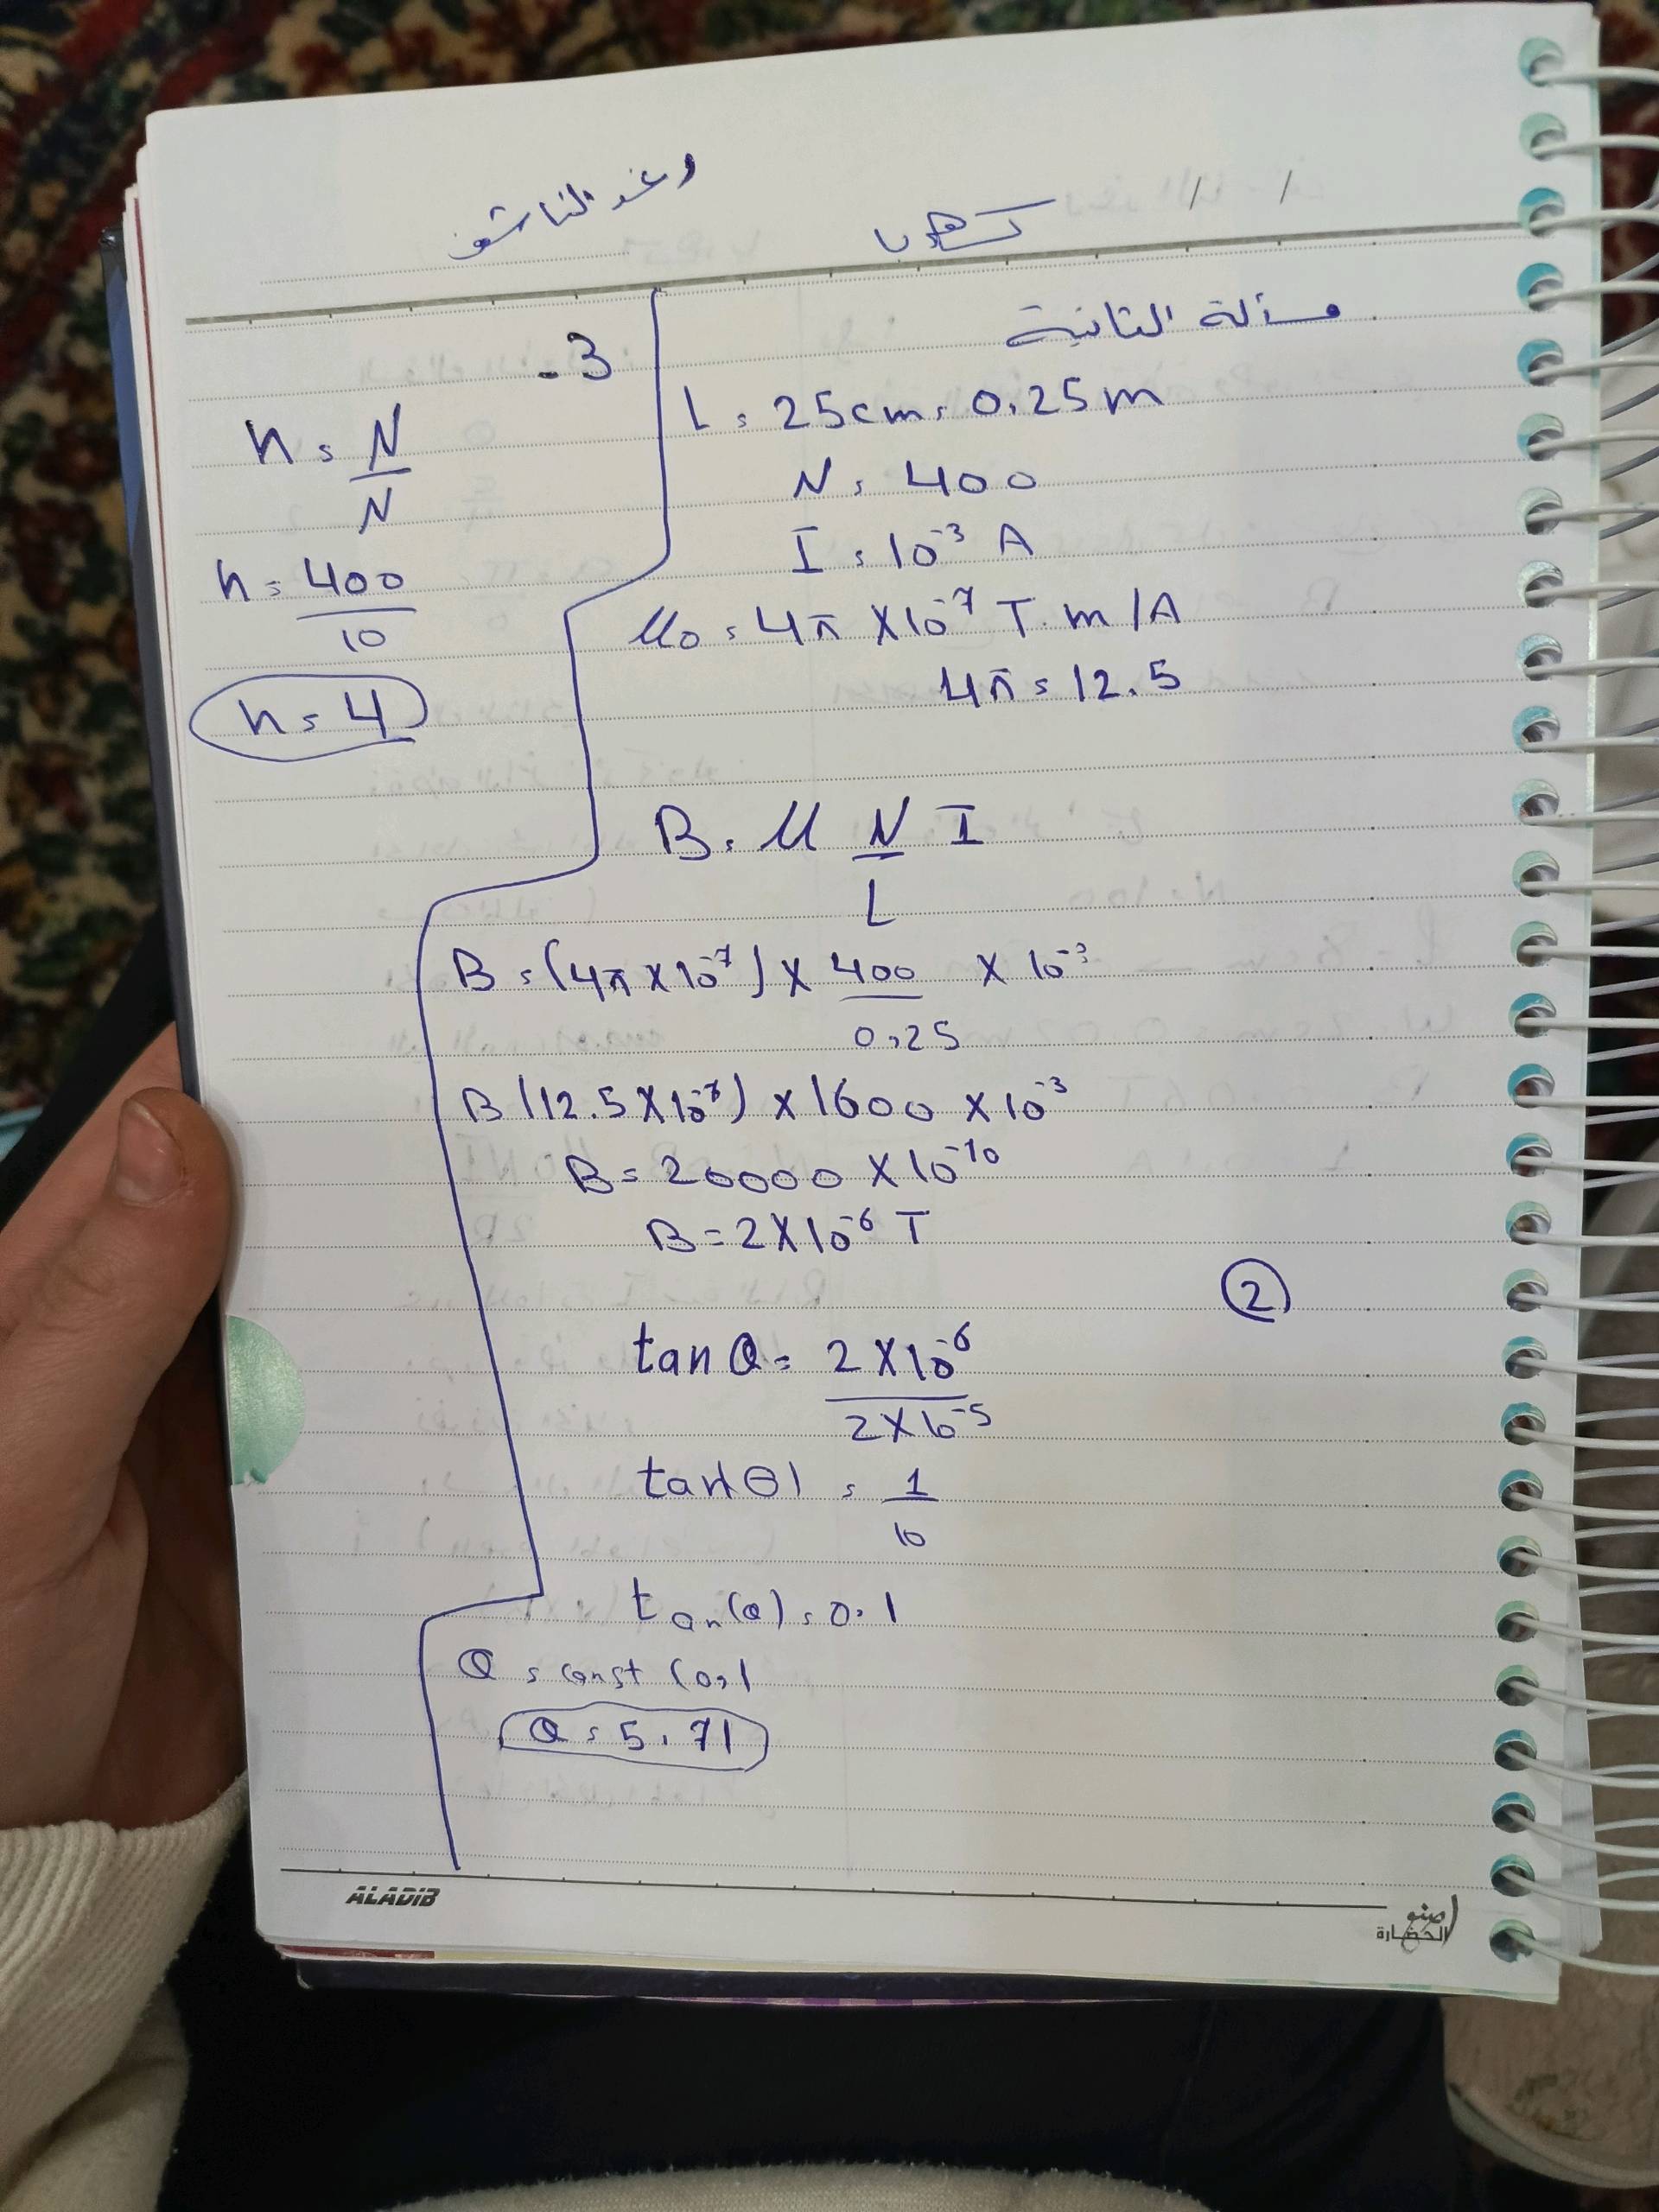 رغد الناشف
كهربا
/ /
مسألة الثانية
L = 25cm = 0.25m
N = 400
I = 10⁻³ A
μ₀ = 4π × 10⁻⁷ T.m/A
4π = 12.5
B = μ N/L I
B = (4π × 10⁻⁷) × 400/0,25 × 10⁻³
B (12.5 × 10⁻⁷) × 1600 × 10⁻³
B = 20000 × 10⁻¹⁰
B = 2 × 10⁻⁶ T
②
tan θ = 2 × 10⁻⁶ / 2 × 10⁻⁵
tan(θ) = 1/10
tan(θ) = 0.1
θ = const (0,1
θ = 5.71
3 -
n = N/N
n = 400/10
n = 4
ALADIB
اصنع الحضارة